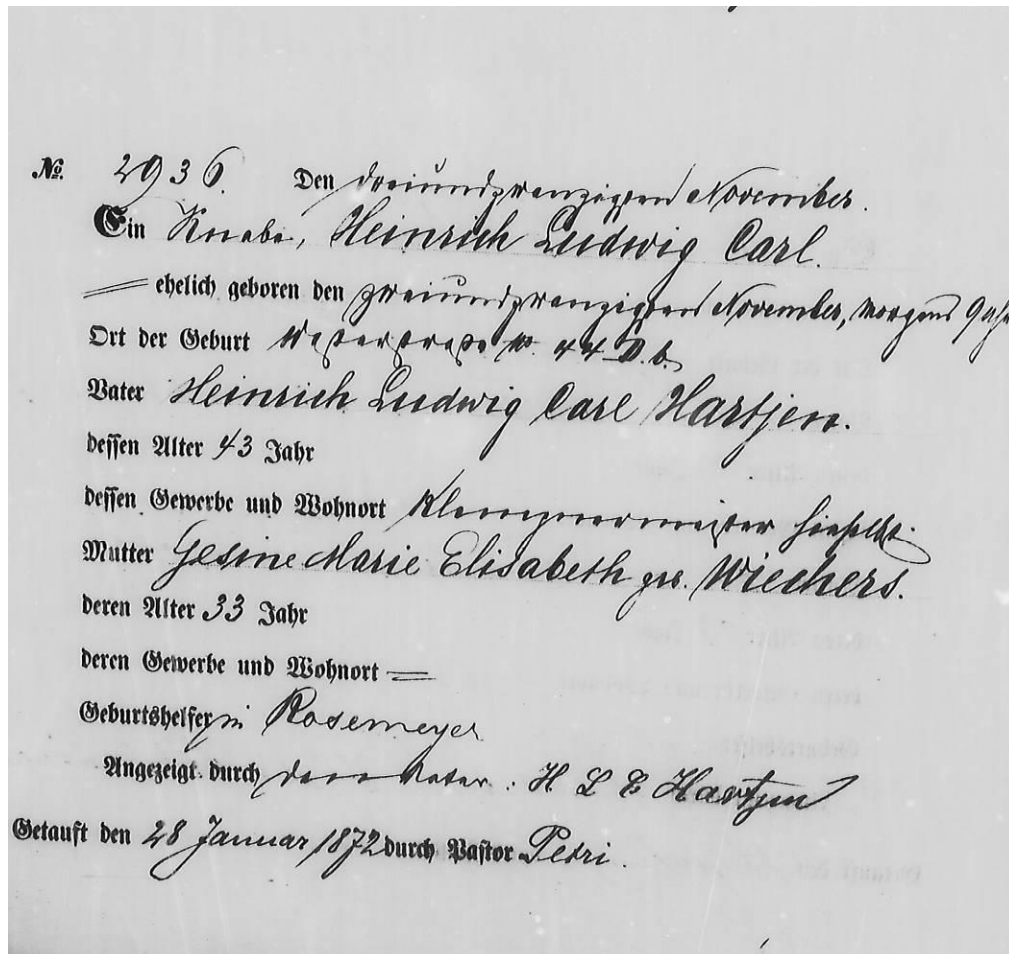 No. 2936. Den dreiundzwanzigsten November.
Ein Knabe, Heinrich Ludwig Carl.
ehelich geboren den zweiundzwanzigsten November, morgens 9 Uhr
Ort der Geburt Westerstraße No. 44
Vater Heinrich Ludwig Carl Hartjen.
dessen Alter 43 Jahr
dessen Gewerbe und Wohnort Klempnermeister hieselbst.
Mutter Gesine Marie Elisabeth geb. Wiechers.
deren Alter 33 Jahr
deren Gewerbe und Wohnort
Geburtshelferin Rosemeyer
Angezeigt durch den Vater: H L C Hartjen
Getauft den 28 Januar 1872 durch Pastor Petri.